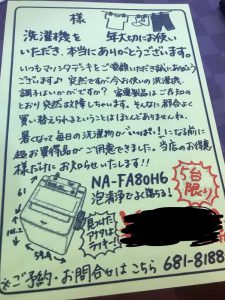 様
洗濯機を 年大切にお使い
いただき、本当にありがとうございます。
いつもマツタデンキをご愛顧いただき誠にありがとう
ございます♪ 突然ですが今お使いの洗濯機、
調子はいかがですか? 家電製品はご存知の
とおり突然故障しちゃいます。そんなに都合よく
買い替えられるということはほとんどありませんね。
暑くなって毎日の洗濯物がいっぱい!!になる前に
超お買得品がご用意できました。当店のお得意
様だけにお知らせいたします!!
NA-FA80H6
泡洗浄でよく落ちる!
5台
限り
見つけた
アナタは
ラッキー!!
※ご予約・お問合せはこちら 681-8188